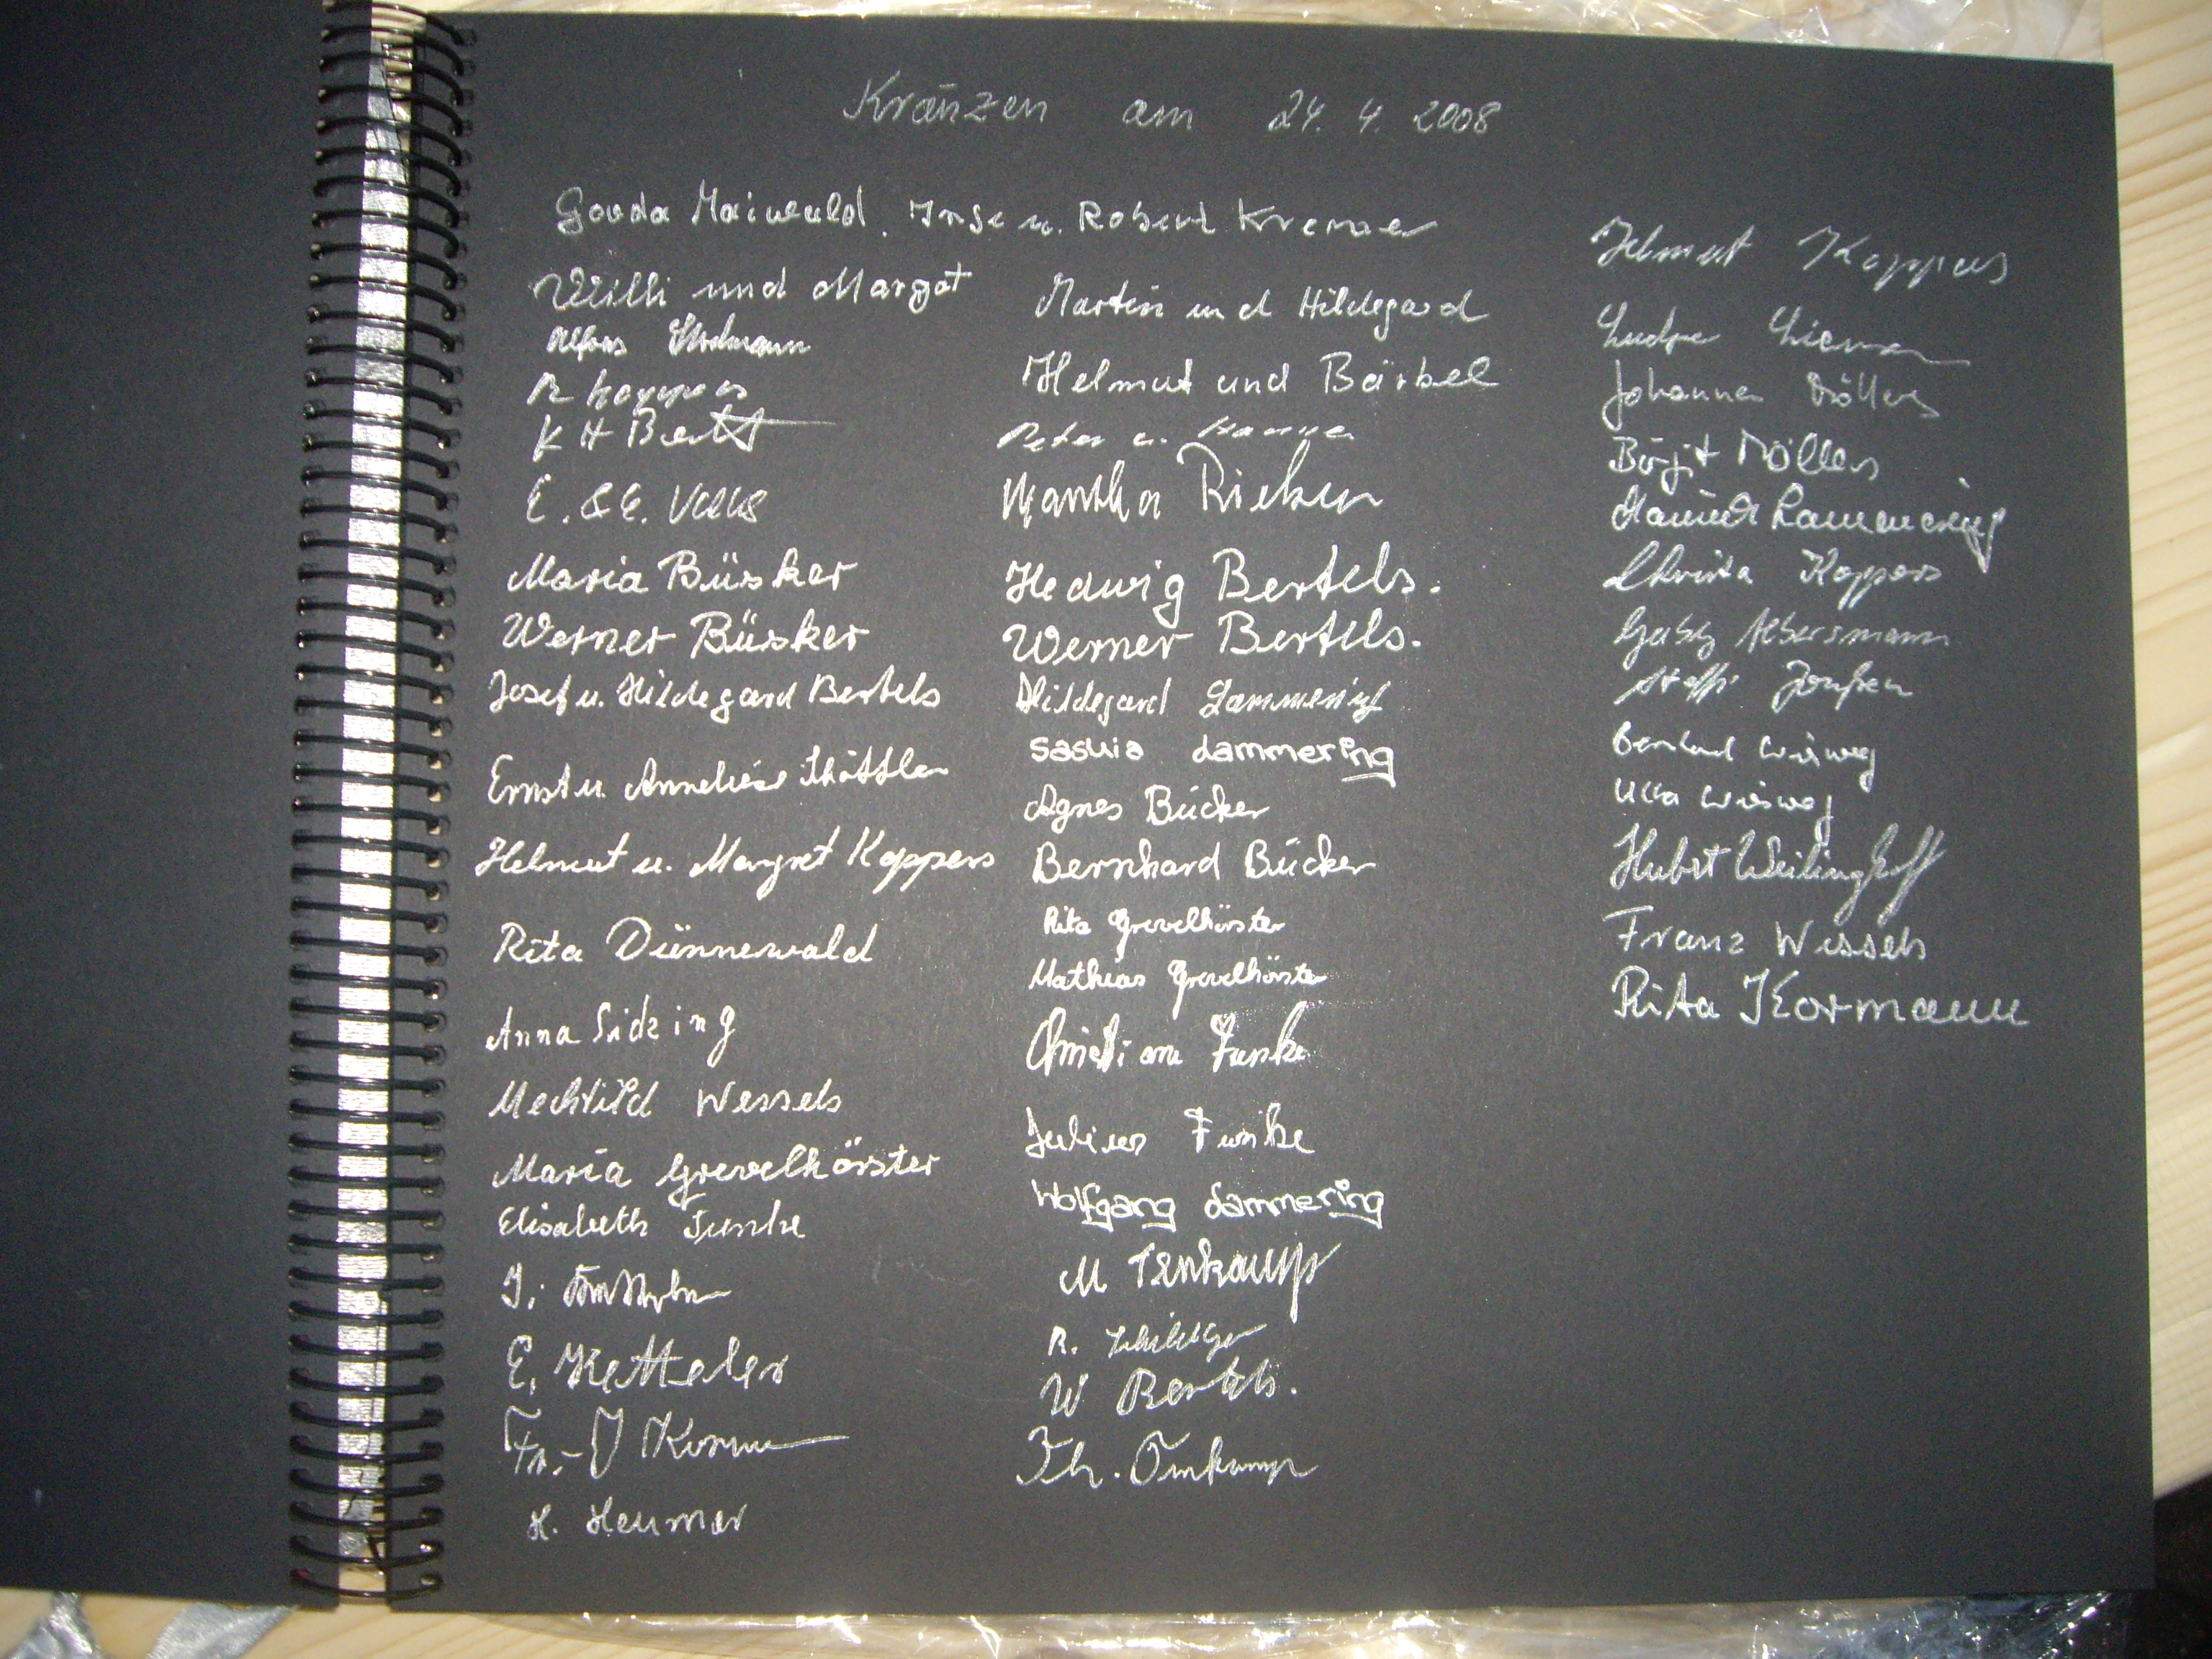 Kränzen am 24. 4. 2008
Gouda Maiwald. Inge u. Robert Kremer
Willi und Margot
Alfons
R Koppers
K H
E. & E.
Maria Büsker
Werner Büsker
Josef u. Hildegard Bertels
Ernst u. Anneliese
Helmut u. Margret Koppers
Rita Dünnewald
Anna Sidzing
Mechtild Wessels
Maria Grevelhörster
Elisabeth Funke
E. Ketteler
H. Heumer
Martin und Hildegard
Helmut und Bärbel
Peter u. Hanna
Martha Rieken
Hedwig Bertels.
Werner Bertels.
Hildegard Lammering
Saskia Lammering
Agnes Bücker
Bernhard Bücker
Rita Grevelhörster
Mathias Grevelhörster
Christiane Funke
Julius Funke
Wolfgang Lammering
M Temkamp
R.
W Bertels.
Th. Omkamp
Helmut Koppers
Johannes Möllers
Birgit Möllers
Lammering
Christa Koppers
Gaby Albersmann
Steffi
Wisweg
Ulla Wisweg
Hubert Weilinghoff
Franz Wissels
Rita Kormann